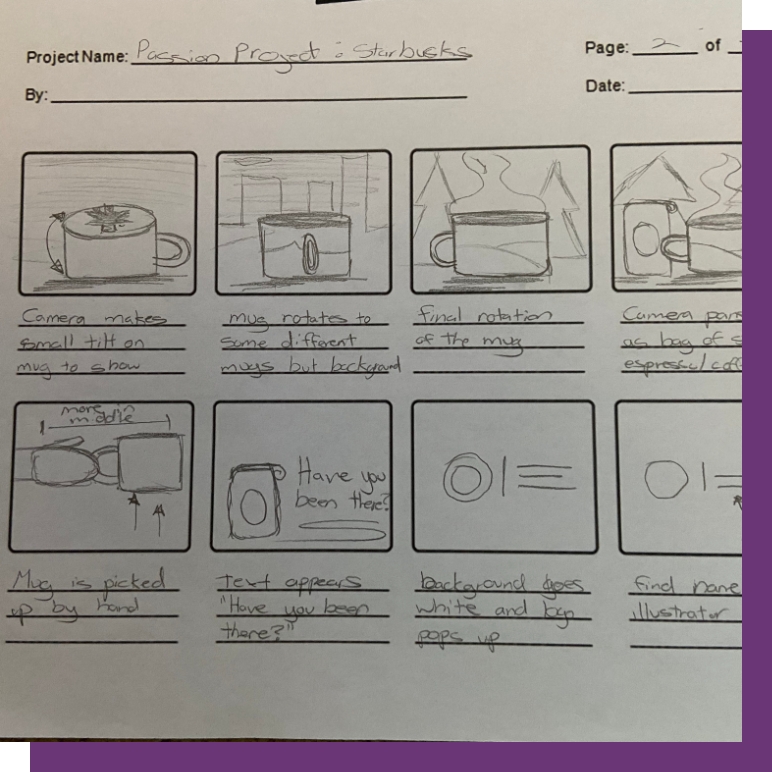 Project Name: Passion Project : Starbucks
Page: 2 of
By:
Date:
Camera makes
small tilt on
mug to show
mug rotates to
some different
mugs but background
final rotation
of the mug
Camera pans
as bag of
espresso/
more in
middle
Have you
been there?
Mug is picked
up by hand
text appears
"Have you been
there?"
background goes
white and logo
pops up
find name
illustrator